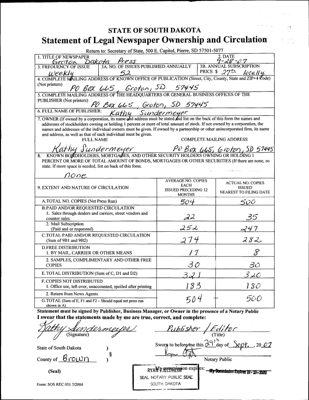 STATE OF SOUTH DAKOTA
Statement of Legal Newspaper Ownership and Circulation
Return to: Secretary of State, 500 E. Capitol, Pierre, SD 57501-5077
1. TITLE OF NEWSPAPER 2. DATE
Groton Dakota Press 9-28-07
3. FREQUENCY OF ISSUE 3A. NO. OF ISSUES PUBLISHED ANNUALLY 3B. ANNUAL SUBSCRIPTION
weekly 52 PRICE $
4. COMPLETE MAILING ADDRESS OF KNOWN OFFICE OF PUBLICATION (Street, City, County, State and ZIP+4 Code)
(Not printers)
PO Box 665 Groton, SD 57445
5. COMPLETE MAILING ADDRESS OF THE HEADQUARTERS OR GENERAL BUSINESS OFFICES OF THE
PUBLISHER (Not printers)
PO Box 665, Groton, SD 57445
6. FULL NAME OF PUBLISHER:
Kathy Sundermeyer
7. OWNER (If owned by a corporation, its name and address must be stated and list on the back of this form the names and
addresses of stockholders owning or holding 1 percent or more of total amount of stock. If not owned by a corporation, the
names and addresses of the individual owners must be given. If owned by a partnership or other unincorporated firm, its name
and address, as well as that of each individual must be given.
FULL NAME COMPLETE MAILING ADDRESS
Kathy Sundermeyer PO Box 665, Groton, SD 57445
8. KNOWN BONDHOLDERS, MORTGAGEES, AND OTHER SECURITY HOLDERS OWNING OR HOLDING 1
PERCENT OR MORE OF TOTAL AMOUNT OF BONDS, MORTGAGES OR OTHER SECURITIES (If there are none, so
state. If more space is needed, list on back of this form.
none
9. EXTENT AND NATURE OF CIRCULATION
AVERAGE NO. COPIES
EACH
ISSUED PRECEDING 12
MONTHS
ACTUAL NO. COPIES
ISSUED
NEAREST TO FILING DATE
A. TOTAL NO. COPIES (Net Press Run) 504 500
B. PAID AND/OR REQUESTED CIRCULATION
1. Sales through dealers and carriers, street vendors and
counter sales. 22 35
2. Mail Subscription
(Paid and or requested) 252 247
C. TOTAL PAID AND/OR REQUESTED CIRCULATION
(Sum of 9B1 and 9B2) 274 282
D. FREE DISTRIBUTION
1. BY MAIL, CARRIER OR OTHER MEANS 17 8
2. SAMPLES, COMPLIMENTARY AND OTHER FREE
COPIES 30 30
E. TOTAL DISTRIBUTION (Sum of C, D1 and D2) 321 320
F. COPIES NOT DISTRIBUTED
1. Office use, left over, unaccounted, spoiled after printing 183 180
2. Return from News Agents
G. TOTAL (Sum of E, F1 and F2 - Should equal net press run
shown in A) 504 500
Statement must be signed by Publisher, Business Manager, or Owner in the presence of a Notary Public
I swear that the statements made by me are true, correct, and complete:
Kathy Sundermeyer Publisher / Editor
(Signature) (Title)
State of South Dakota )
Sworn to before me this day of Sept., 2007
County of Brown )
Notary Public
(Seal)
SEAL NOTARY PUBLIC SEAL
SOUTH DAKOTA